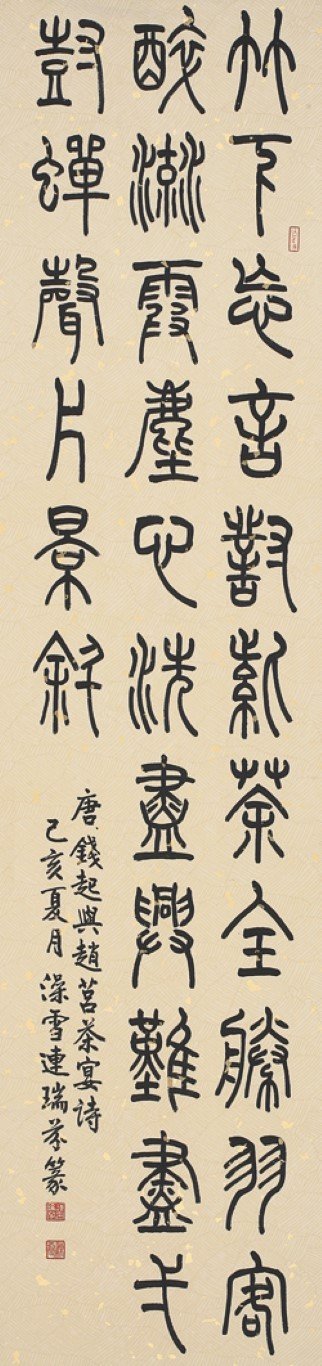 竹下忘言對紫茶全勝羽客
醉流霞塵心洗盡興難盡弌
尌蟬聲片景斜
唐錢起與趙莒茶宴詩
己亥夏月澡雪連瑞芬篆